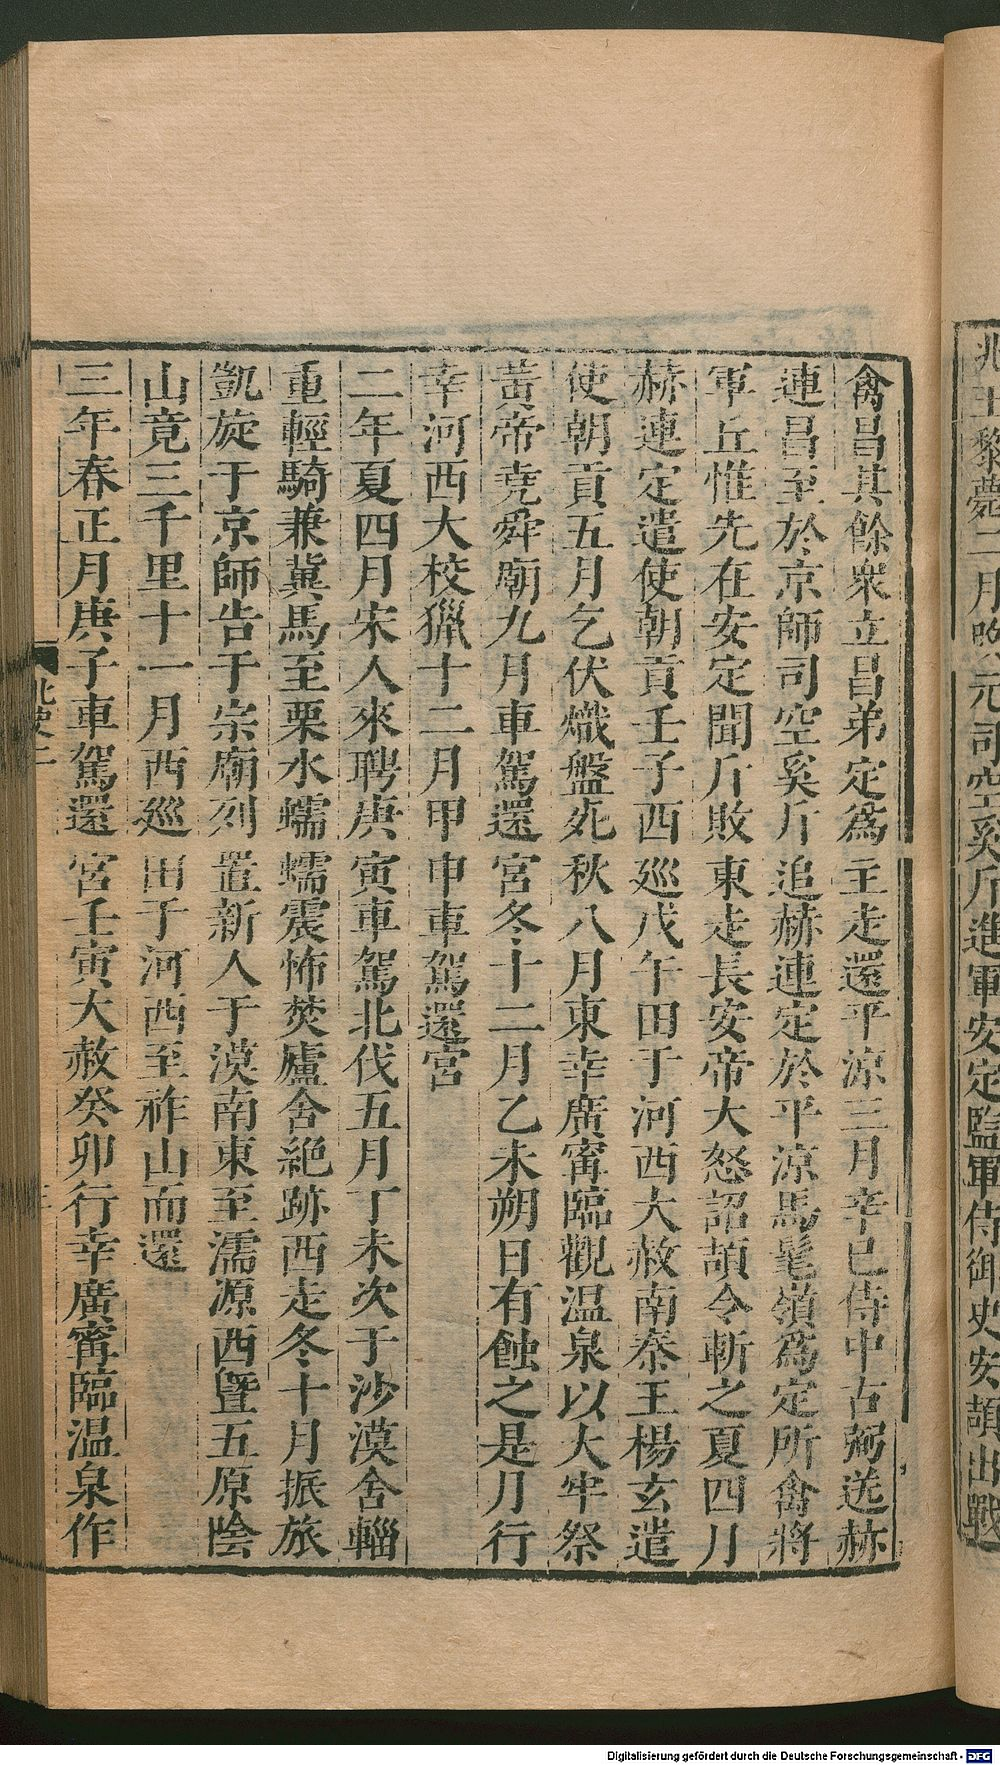 兆王黎薨二月改元司空奚斤進軍安定監軍侍御史安頡出戰
禽昌其餘衆立昌弟定爲王走還平涼三月辛巳侍中古弼送赫
連昌至於京師司空奚斤追赫連定於平涼馬髦嶺爲定所禽將
軍丘惟先在安定聞斤敗東走長安帝大怒詔頡令斬之夏四月
赫連定遣使朝貢壬子西巡戊午田于河西大赦南秦王楊玄遣
使朝貢五月乞伏熾盤死秋八月東幸廣甯臨觀温泉以大牢祭
黃帝堯舜廟九月車駕還宮冬十二月乙未朔日有蝕之是月行
幸河西大校獵十二月甲申車駕還宮
二年夏四月宋人來聘庚寅車駕北伐五月丁未次于沙漠舍輜
重輕騎兼冀馬至栗水蠕蠕震怖焚廬舍絶跡西走冬十月振旅
凱旋于京師告于宗廟列置新人于漠南東至濡源西暨五原陰
山竟三千里十一月西巡田于河西至祚山而還
三年春正月庚子車駕還宮壬寅大赦癸卯行幸廣甯臨温泉作
北史二